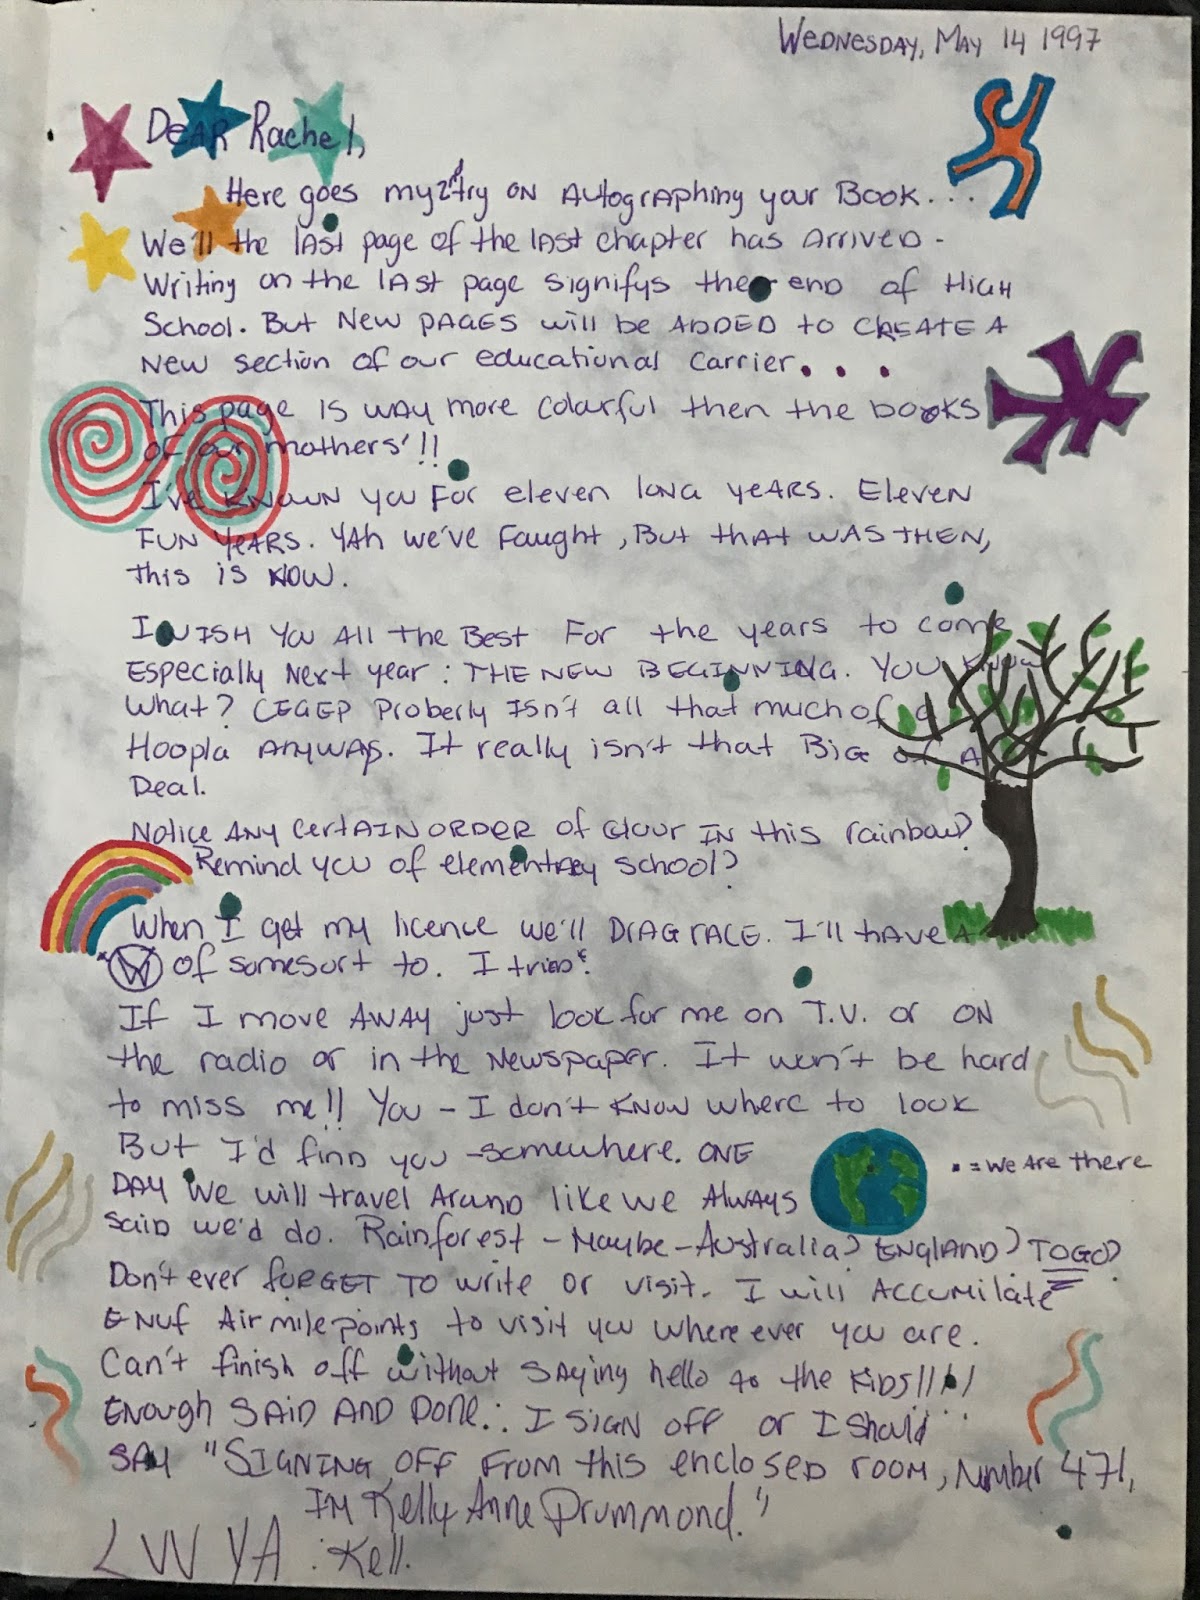 Wednesday, May 14 1997
Dear Rachel,
Here goes my 2nd try on Autographing your Book...
We'll the last page of the last chapter has arrived -
Writing on the last page signifys the end of High
School. But New pages will be ADDED to CREATE A
New section of our educational carrier...
This page is way more colorful then the books
of our mothers'!!
I've known you for eleven long years. Eleven
FUN YEARS. YAh we've faught, But that WAS THEN,
this is NOW.
I WISH You All the Best For the years to come
Especially Next year: THE NEW BEGINNING. YOU Know
What? CEGEP Proberly Isn't all that much of a
Hoopla ANYWAYS. It really isn't that BIG of A
Deal.
Notice ANY CertAIN ORDER of Colour IN this rainbow?
Remind you of elementrey school?
When I get my licence we'll DRAG RACE. I'll hAVE A
VW of somesort to. I tried!
If I move AWAY just look for me on T.V. or ON
the radio or in the Newspaper. It won't be hard
to miss me!! You - I don't KNOW where to look
But I'd find you -somewhere. ONE
DAY We will travel Around like we Always
said we'd do. Rainforest - Maybe - Australia? ENGLAND? TOGO?
• = We Are there
Don't ever forget to write or visit. I will Accumilate
ENuf Air mile points to visit you where ever you are.
Can't finish off without saying hello to the KIDS!!!!
Enough SAID AND Done.: I SIGN OFF or I should
SAY "SIGNING OFF From this enclosed room, Number 471,
I'M Kelly Anne Drummond."
LVV YA : Kell.